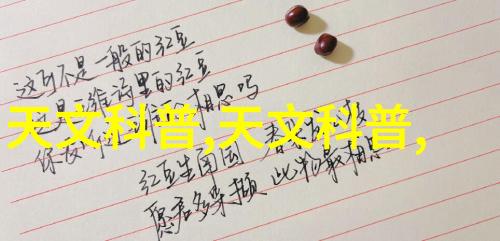 这可不是一般的红豆
这是
海里的红豆
保友
相思吗
天文科普,天文科普,
红豆生南国
春
愿君多采撷 此物最相思